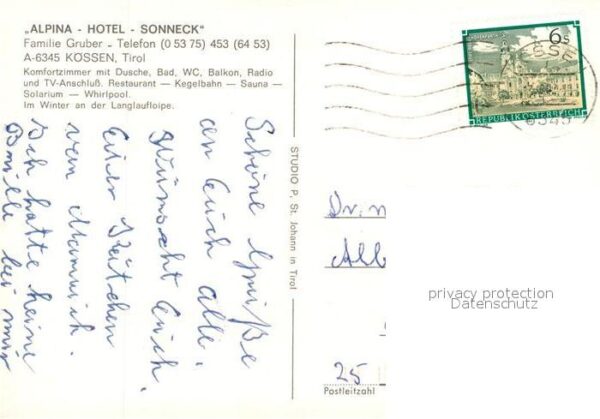 „ALPINA - HOTEL - SONNECK"
Familie Gruber - Telefon (0 53 75) 453 (64 53)
A-6345 KÖSSEN, Tirol
Komfortzimmer mit Dusche, Bad, WC, Balkon, Radio
und TV-Anschluß. Restaurant — Kegelbahn — Sauna —
Solarium — Whirlpool.
Im Winter an der Langlaufloipe.
Schöne Grüße
an Euch alle.
Wünscht Euch.
Euer Kätchen
von Mannich.
Ich hatte keine
Brille bei mir
STUDIO P, St. Johann in Tirol
6s
REPUBLIK ÖSTERREICH
6345
Dr.
All
25
Postleitzahl
privacy protection
Datenschutz